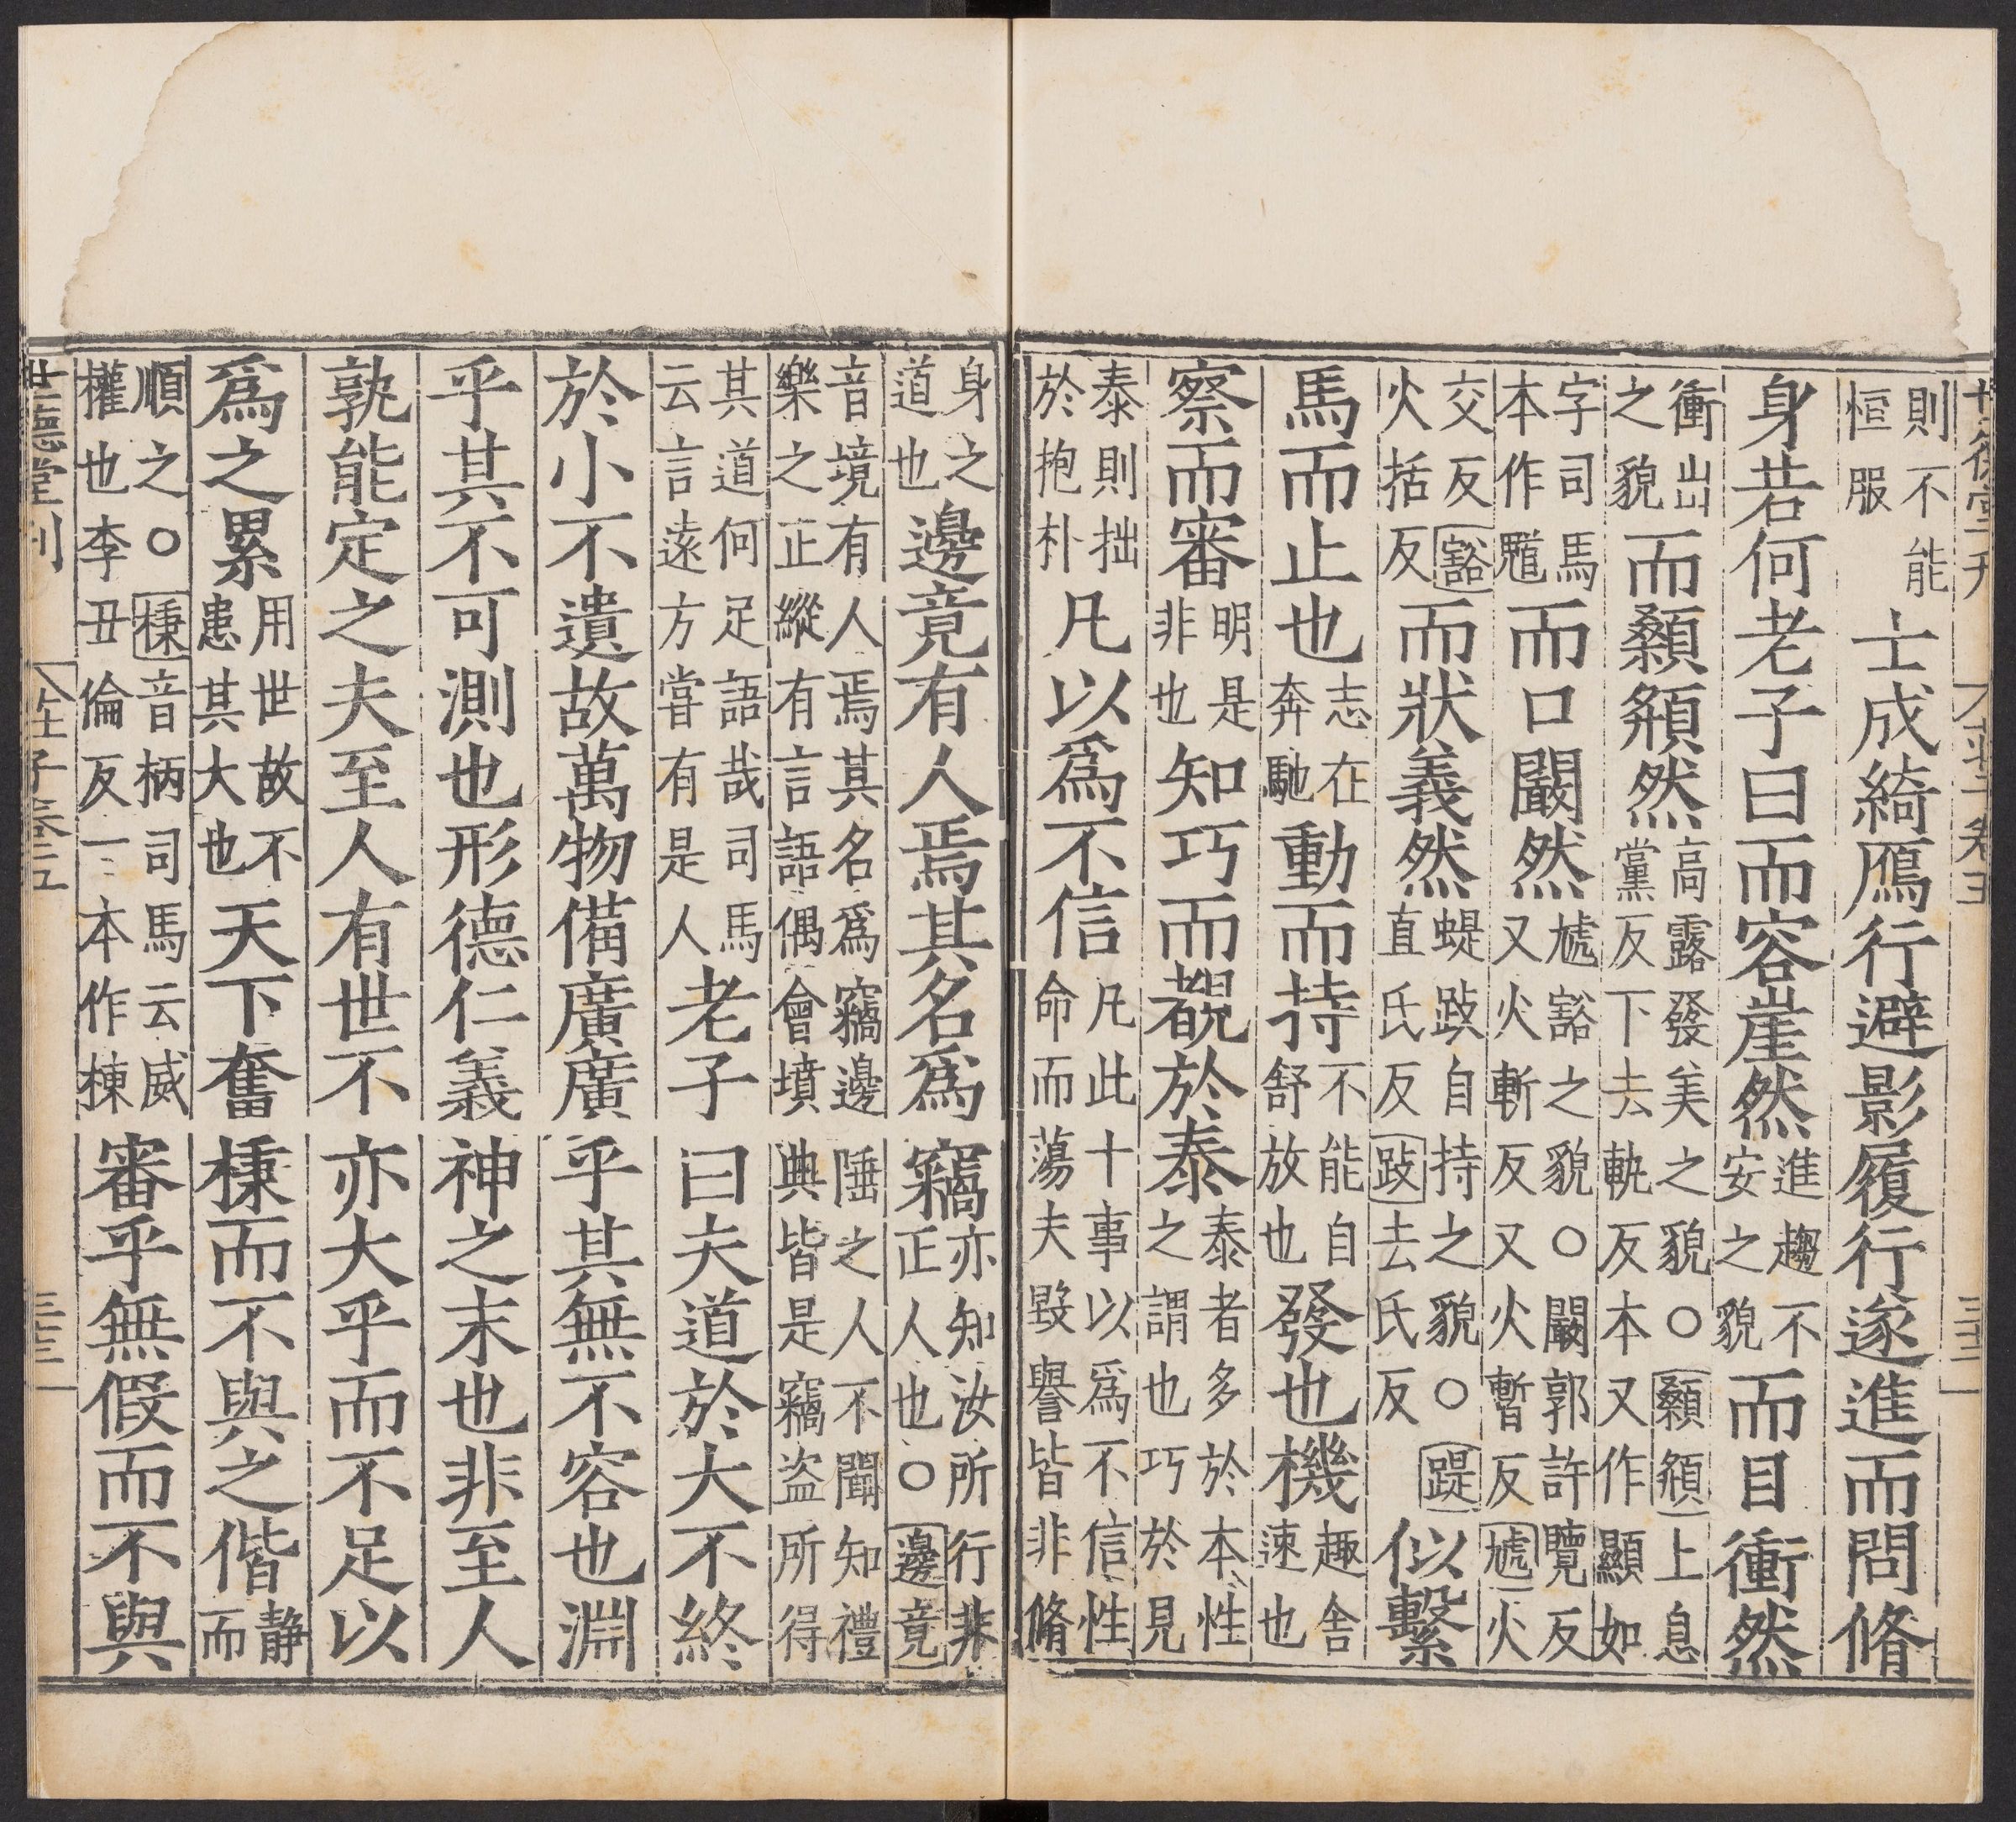 則不能恒服士成綺鴈行避影履行遂進而問脩
身若何老子曰而容崖然進趨不安之貌而目衝然
衝出之貌而顙頯然高露發美之貌○顙頯上息黨反下去軌反本又作顯如
字司馬本作魋而口闞然虓豁之貌○闞郭許覽反又火斬反又火暫反虓火
交反豁火括反而狀義然踶跂自持之貌○踶直氏反跂去氏反似繫
馬而止也志在奔馳動而持不能自舒放也發也機趣舍速也
察而審明是非也知巧而覩於泰泰者多於本性之謂也巧於見
泰則拙於抱朴凡以爲不信凡此十事以爲不信性命而蕩夫毀譽皆非脩
身之道也邊竟有人焉其名爲竊亦知汝所行非正人也○邊竟
音境有人焉其名爲竊邊陲之人不聞知禮樂之正縱有言語偶會墳典皆是竊盗所得
其道何足語哉司馬云言遠方嘗有是人老子曰夫道於大不終
於小不遺故萬物備廣廣乎其無不容也淵
乎其不可測也形德仁義神之末也非至人
孰能定之夫至人有世不亦大乎而不足以
爲之累用世故不患其大也天下奮棅而不與之偕静而
順之○棅音柄司馬云威權也李丑倫反一本作棟審乎無假而不與
世德堂刊 莊子卷五 三十三